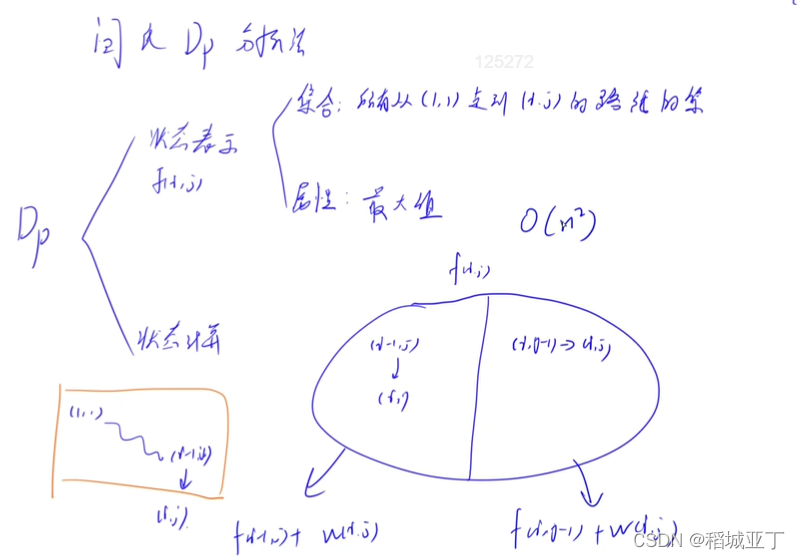 闫氏 Dp 分析法
125272
集合: 所有从(1,1)走到(i,j)的路线的集
状态表示
f(i,j)
属性: 最大值
O(n²)
Dp
f(i,j)
状态计算
(i-1,j)
↓
(i,j)
(i,j-1)→(i,j)
(1,1)
(i-1,j)
↓
(i,j)
f(i-1,j)+ w(i,j)
f(i,j-1)+w(i,j)
CSDN @稻城亚丁